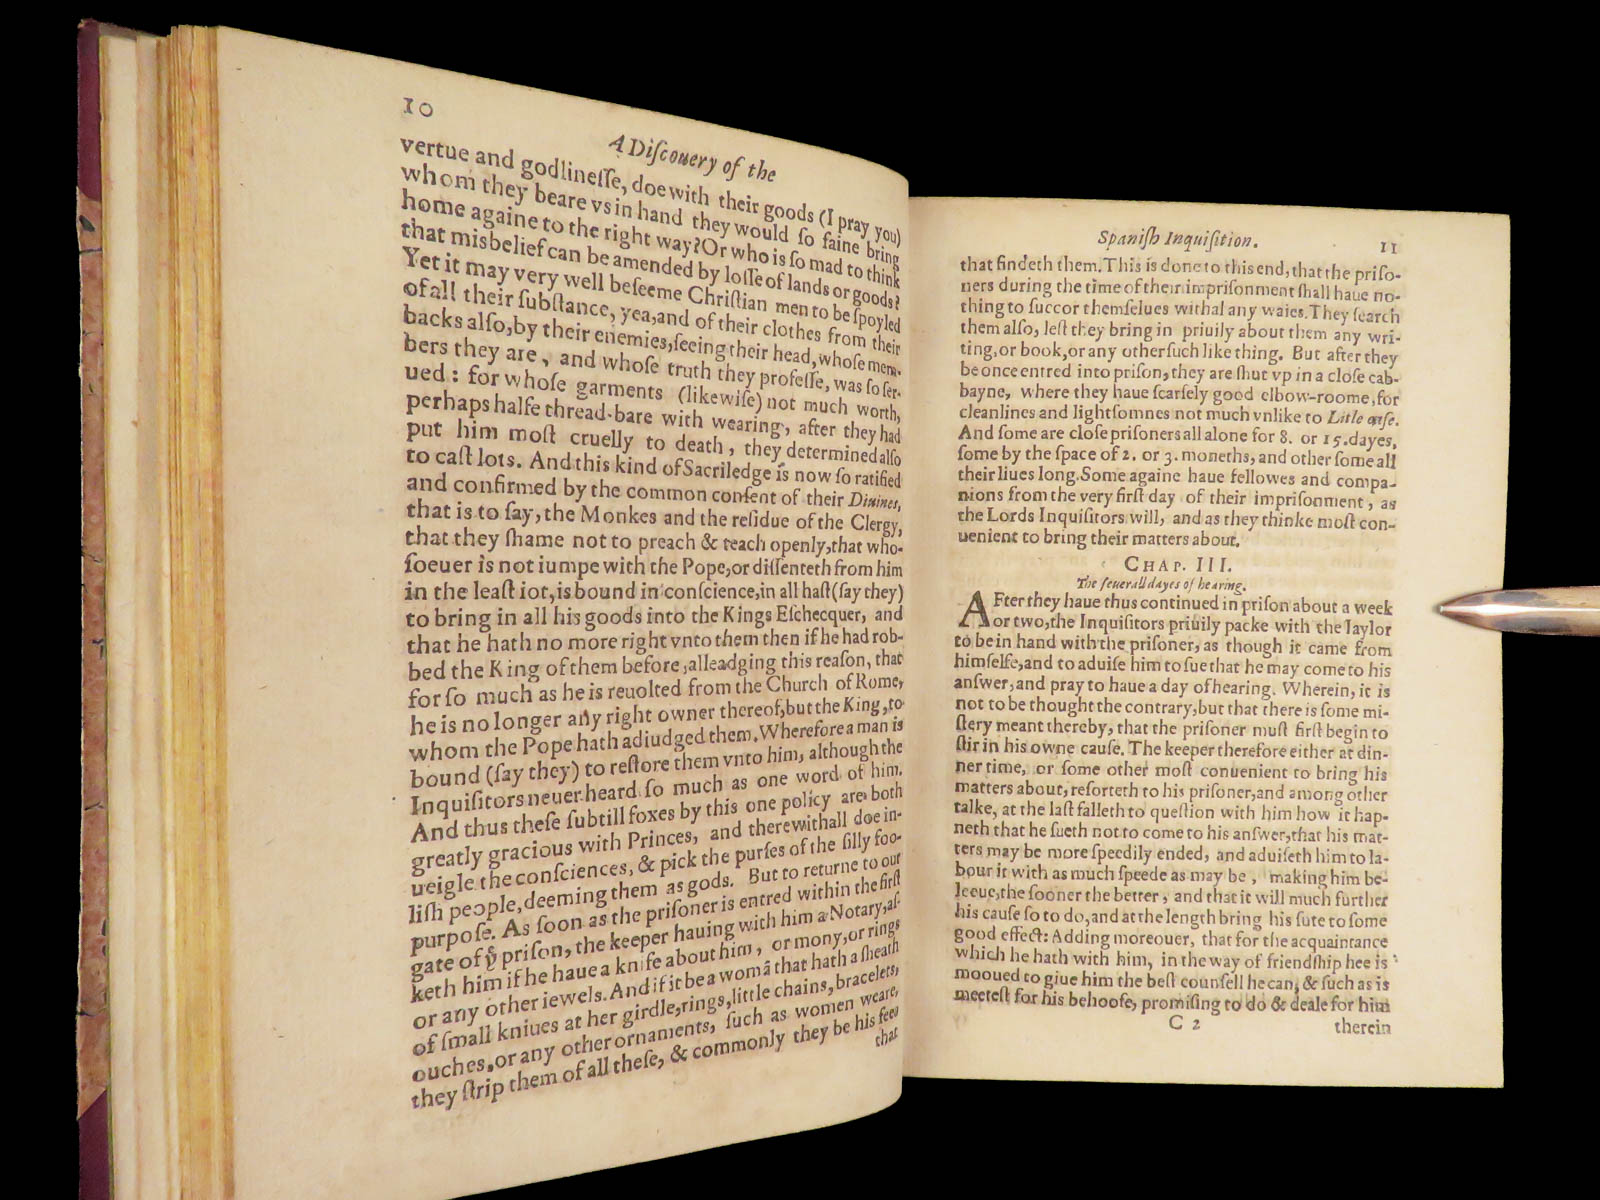 10
A Diſcouery of the
vertue and godlineſſe, doe with their goods (I pray you)
whom they beare vs in hand they would ſo faine bring
home againe to the right way? Or who is ſo mad to think
that misbelief can be amended by loſſe of lands or goods?
Yet it may very well beſeeme Chriſtian men to be ſpoyled
of all their ſubſtance, yea, and of their clothes from their
backs alſo, by their enemies, ſeeing their head, whoſe mem-
bers they are, and whoſe truth they profeſſe, was ſo ſer-
ued: for whoſe garments (likewiſe) not much worth,
perhaps halfe thread-bare with wearing, after they had
put him moſt cruelly to death, they determined alſo
to caſt lots. And this kind of Sacriledge is now ſo ratified
and confirmed by the common conſent of their Diuines,
that is to ſay, the Monkes and the reſidue of the Clergy,
that they ſhame not to preach & teach openly, that who-
ſoeuer is not iumpe with the Pope, or diſſenteth from him
in the leaſt iot, is bound in conſcience, in all haſt (ſay they)
to bring in all his goods into the Kings Eſchecquer, and
that he hath no more right vnto them then if he had rob-
bed the King of them before, alleadging this reaſon, that
for ſo much as he is reuolted from the Church of Rome,
he is no longer any right owner thereof, but the King, to
whom the Pope hath adiudged them. Wherefore a man is
bound (ſay they) to reſtore them vnto him, although the
Inquiſitors neuer heard ſo much as one word of him.
And thus theſe ſubtill foxes by this one policy are both
greatly gracious with Princes, and therewithall doe in-
ueigle the conſciences, & pick the purſes of the ſilly foo-
liſh people, deeming them as gods. But to returne to our
purpoſe. As ſoon as the priſoner is entred within the firſt
gate of yͤ priſon, the keeper hauing with him a Notary, aſ-
keth him if he haue a knife about him, or mony, or rings
or any other iewels. And if it be a womã that hath a ſheath
of ſmall kniues at her girdle, rings, little chains, bracelets,
ouches, or any other ornaments, ſuch as women weare,
they ſtrip them of all theſe, & commonly they be his fees
that
Spaniſh Inquiſition.
11
that findeth them. This is done to this end, that the priſo-
ners during the time of their impriſonment ſhall haue no-
thing to ſuccor themſelues withal any waies. They ſearch
them alſo, leſt they bring in priuily about them any wri-
ting, or book, or any other ſuch like thing. But after they
be once entred into priſon, they are ſhut vp in a cloſe cab-
bayne, where they haue ſcarſely good elbow-roome, for
cleanlines and lightſomnes not much vnlike to Litle eaſe.
And ſome are cloſe priſoners all alone for 8. or 15. dayes,
ſome by the ſpace of 2. or 3. moneths, and other ſome all
their liues long. Some againe haue fellowes and compa-
nions from the very firſt day of their impriſonment, as
the Lords Inquiſitors will, and as they thinke moſt con-
uenient to bring their matters about.
CHAP. III.
The ſeuerall dayes of hearing.
AFter they haue thus continued in priſon about a week
or two, the Inquiſitors priuily packe with the Iaylor
to be in hand with the priſoner, as though it came from
himſelfe, and to aduiſe him to ſue that he may come to his
anſwer, and pray to haue a day of hearing. Wherein, it is
not to be thought the contrary, but that there is ſome mi-
ſtery meant thereby, that the priſoner muſt firſt begin to
ſtir in his owne cauſe. The keeper therefore either at din-
ner time, or ſome other moſt conuenient to bring his
matters about, reſorteth to his priſoner, and among other
talke, at the laſt falleth to queſtion with him how it hap-
neth that he ſueth not to come to his anſwer, that his mat-
ters may be more ſpeedily ended, and aduiſeth him to la-
bour it with as much ſpeede as may be, making him be-
leeue, the ſooner the better, and that it will much further
his cauſe ſo to do, and at the length bring his ſute to ſome
good effect: Adding moreouer, that for the acquaintance
which he hath with him, in the way of friendſhip hee is
mooued to giue him the beſt counſell he can, & ſuch as is
meeteſt for his behoofe, promiſing to do & deale for him
C 2
therein